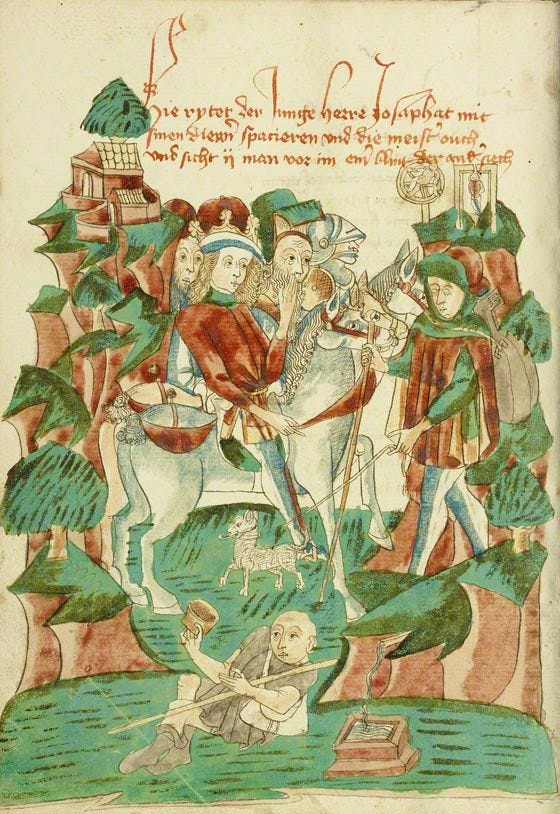 Hie rytet der Junge herre Josaphat mit
sinen dienern spatieren vnd die meister ouch
Vnd sicht ij man vor im ein blint der and siech